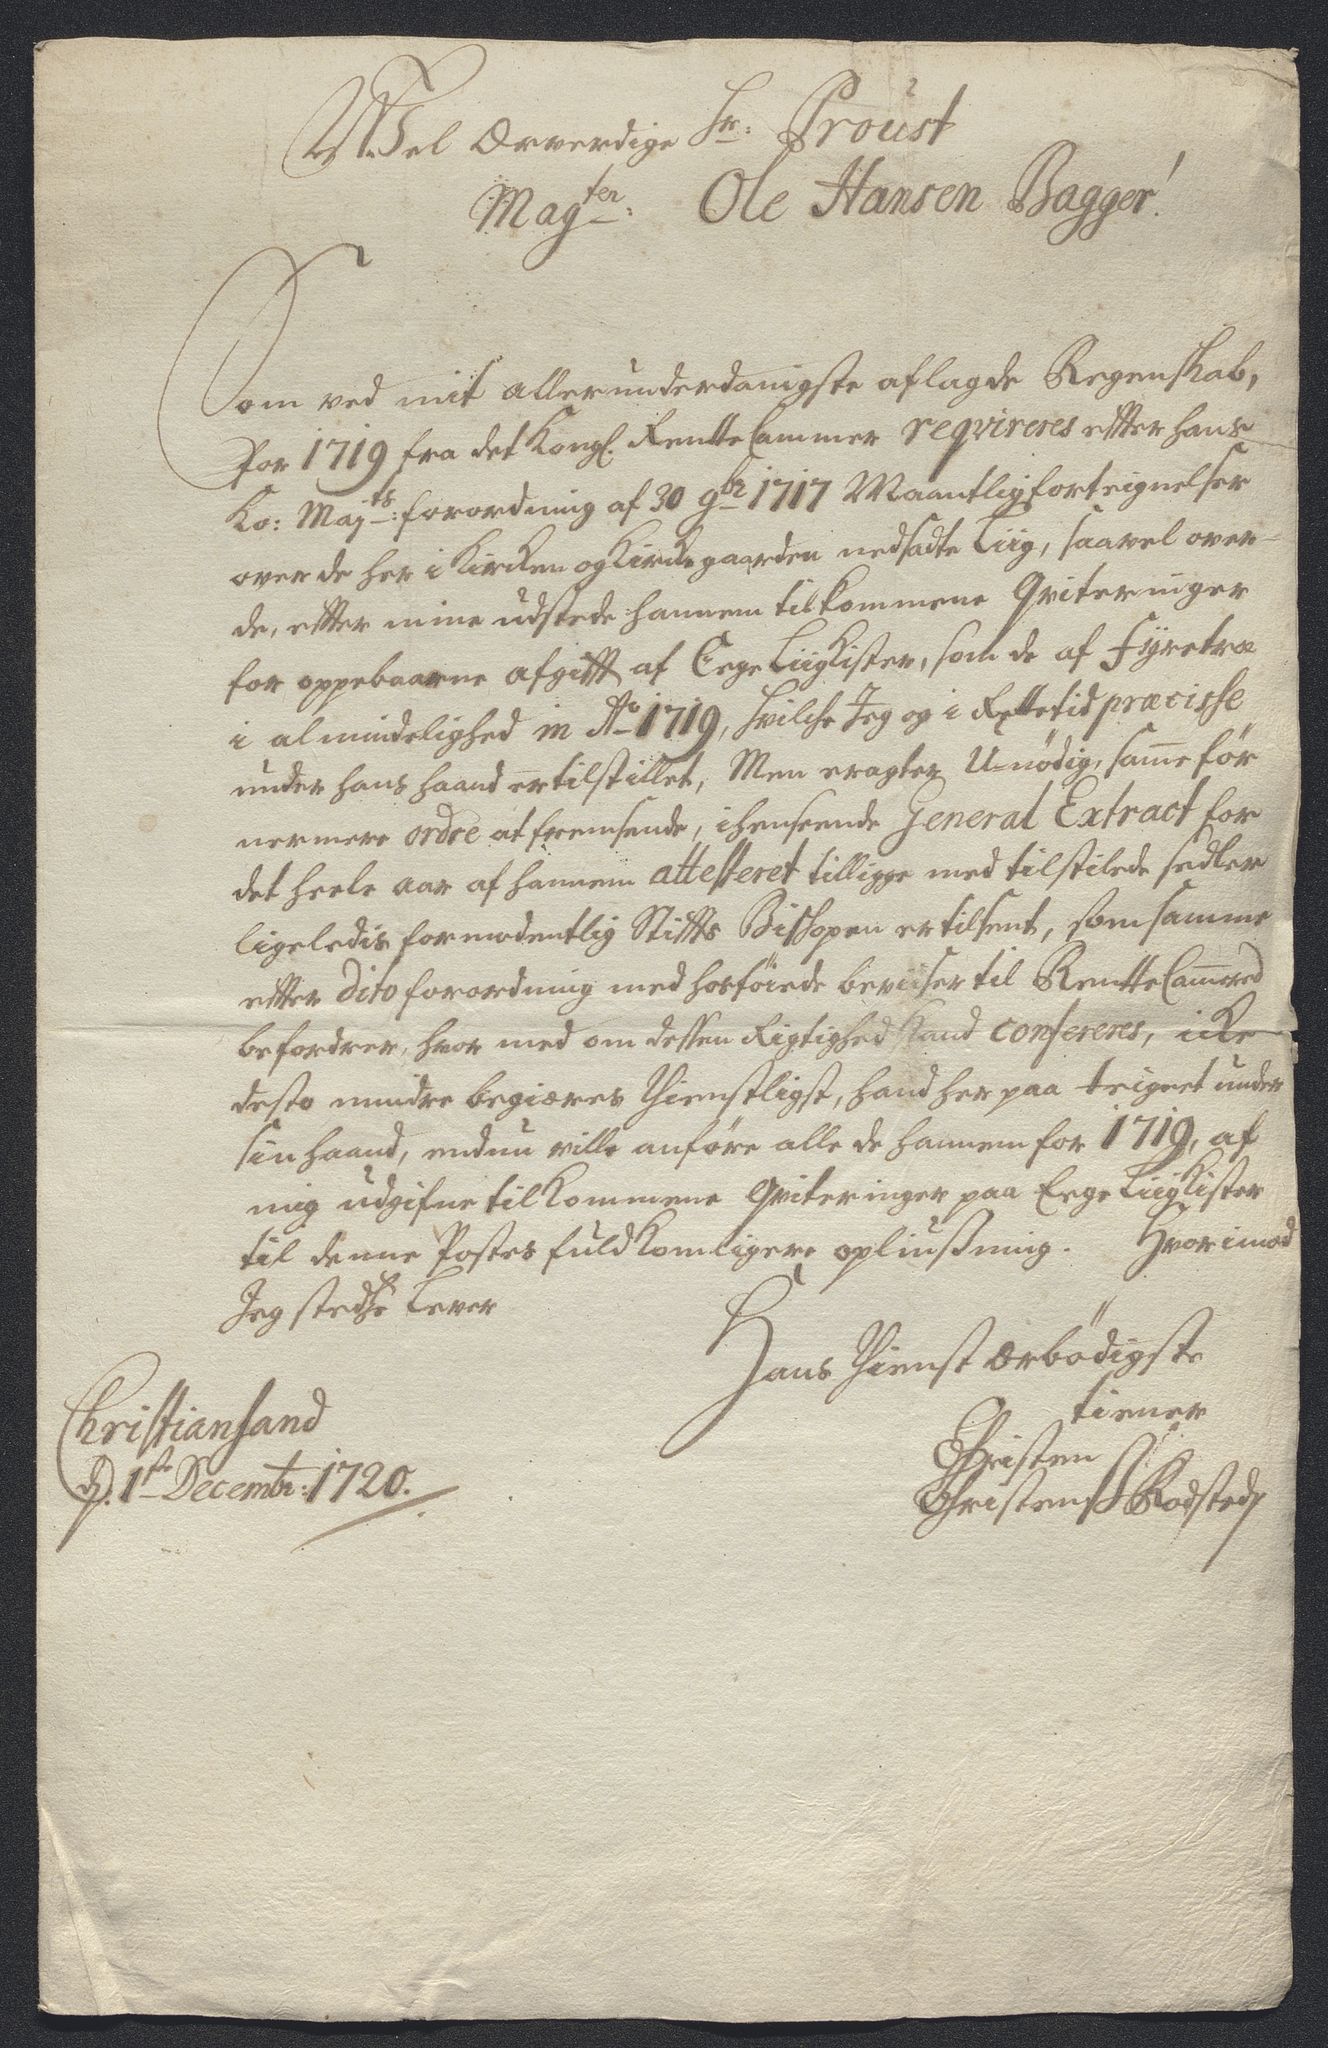 Wel Ærverdige Hr: Proust
Magten: Ole Hansen Bagger!
Som ved mit allerunderdanigste aflagde Regenskab,
for 1719 fra det Kongl. RentteCammer reqvireres effter hans
Ko: Majts: forordning af 30 9br 1717 Maantligforteignelser
over de her i Kircken og Kirckegaarden nedsadte Liig, saavel over
de, effter mine udstede hannem tilkommene Qviteringer
for oppebaarne afgifft af Eege Liigkister, som de af Fÿretræ
i almindelighed in Ao 1719, hvilche Jeg og i Rettetid præcisse
under hans haand er tilstillet, Men eragter U=nödig, same før
nermere ordre at fremsende, i henseende General Extract for
det heele aar af hannem attesteret tilligge med tilstilede sedler
ligeledis formodentlig Stiffts Bischopen er tilsent, som samme
effter dito forordning med hosföiede beviiser til RentteCammered
befordrer, hvor med om dessen Rigtighed kand confereres, icke
desto mindre begiæres thienstligst, hand her paa teignet under
sin haand, endnu ville anföre alle de hannem for 1719, af
mig udgifne tilkommene Qviteringer paa Eege Liigkister
til denne Postes fuldkomligere opliusning. Hvorimod
Jeg stedse lever
Hans thienst ærbödigste
tiener
Christen
Christenss Rodsted
Christiansand
d. 1ste Decembr: 1720.